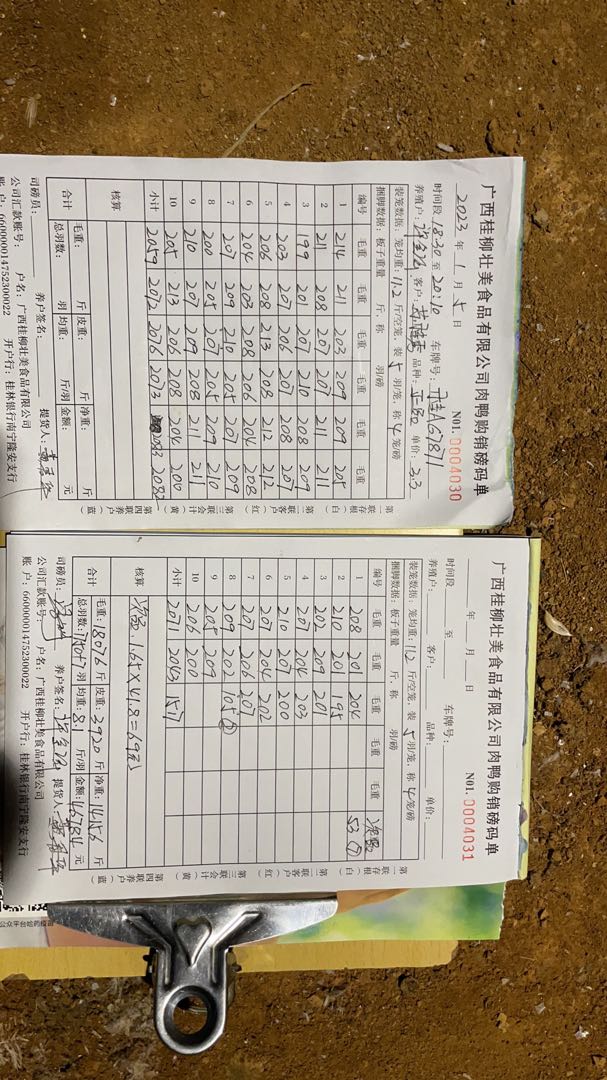 广西桂柳壮美食品有限公司肉鸭购销磅码单
NO1. 0004030
2023 年 1 月 5 日
时间段 18:30 至 20:10 车牌号: 桂AG7811
养殖户: 客户: 品种: 单价: 3.3
装笼数据: 笼均重: 11.2 斤/空笼, 装 5 羽/笼, 称 4 笼/磅
捆脚数据: 板子重量 斤, 称 羽/磅
编号 毛重 毛重 毛重 毛重 毛重 毛重
1 214 211 203 209 209 205
2 211 208 207 207 211 211
3 199 201 207 210 208 209
4 203 207 206 207 208 207
5 206 208 213 208 212 212
6 204 203 208 206 204 208
7 207 209 210 205 207 209
8 200 205 207 205 209 210
9 210 207 209 208 211 211
10 205 213 206 208 204 200
小计 2059 2072 2076 2073 2083 2082
核算
合计 毛重: 斤 皮重: 斤 净重: 斤
总羽数: 羽 均重: 斤/羽 金额: 元
司磅员: 养户签名: 提货人:
公司汇款账号: 户名: 广西桂柳壮美食品有限公司
账 户: 660000014752300022 开户行: 桂林银行南宁隆安支行
第一联存根(白) 第二联客户(红) 第三联会计(黄) 第四联养户(蓝)
广西桂柳壮美食品有限公司肉鸭购销磅码单
NO1. 0004031
年 月 日
时间段 至 车牌号:
养殖户: 客户: 品种: 单价:
装笼数据: 笼均重: 11.2 斤/空笼, 装 5 羽/笼, 称 4 笼/磅
捆脚数据: 板子重量 斤, 称 羽/磅
编号 毛重 毛重 毛重 毛重 毛重
1 208 201 204 53 ⑦
2 210 201 195
3 202 209 201
4 207 204 203
5 210 207 200
6 207 204 202
7 207 206 207
8 209 202 105 ②
9 205 209
10 206 200
小计 2071 2043 1517
核算 1.65×41.8=69元
合计 毛重: 18076 斤 皮重: 3920 斤 净重: 14156 斤
总羽数: 羽 均重: 8.1 斤/羽 金额: 46784 元
司磅员: 养户签名: 提货人:
公司汇款账号: 户名: 广西桂柳壮美食品有限公司
账 户: 660000014752300022 开户行: 桂林银行南宁隆安支行
第一联存根(白) 第二联客户(红) 第三联会计(黄) 第四联养户(蓝)